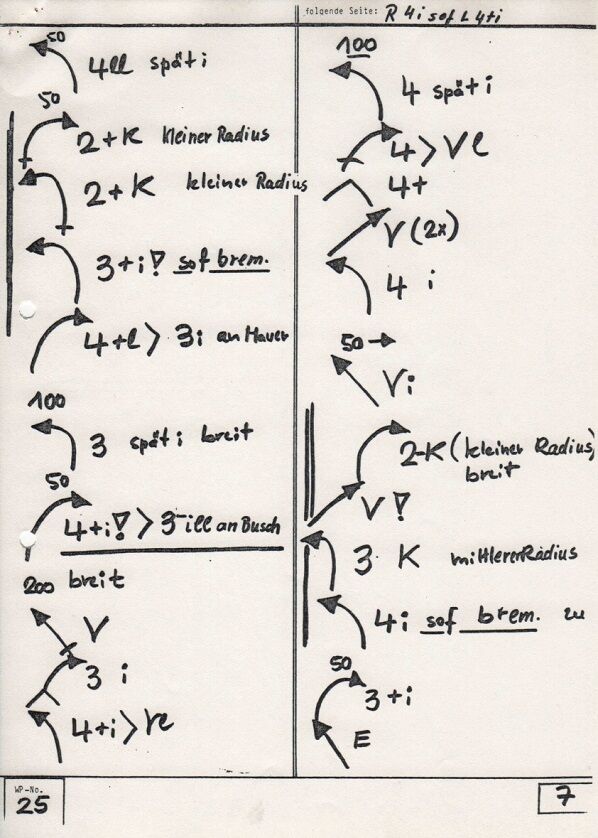 folgende Seite: R 4i sof L 4+i
50
4ll spät i
50
2+K kleiner Radius
2+K kleiner Radius
3+i! sof brem.
4+l > 3i an Mauer
100
3 spät i breit
50
4+i! > 3-ill an Busch
200 breit
V
3 i
4+i > Vl
100
4 spät i
4 > Vl
4+
V (2x)
4 i
50 →
Vi
2-K (kleiner Radius)
breit
V!
3 K mittlerer Radius
4i sof brem. zu
50
3+i
E
WP-No.
25
7